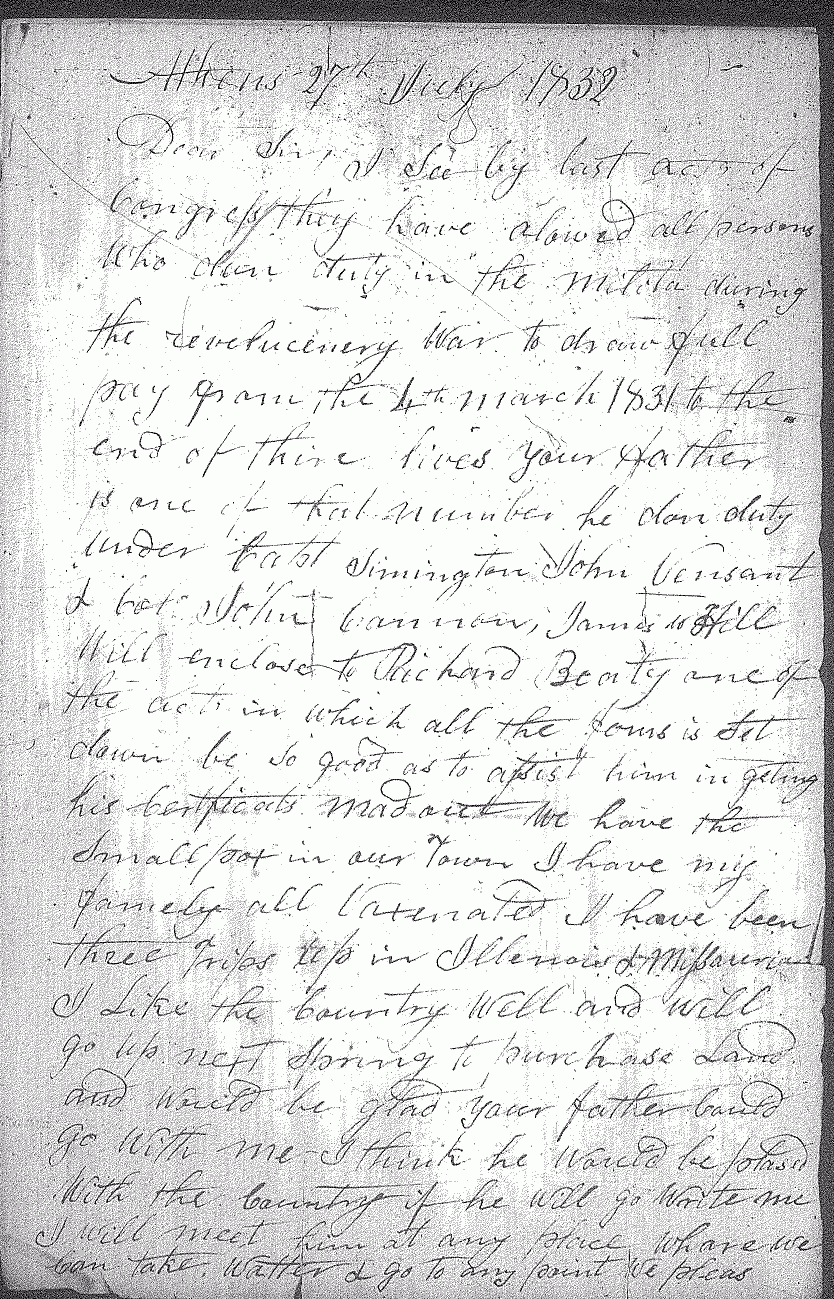 Athens 27th July 1832
Dear Sir, I See by last acts of
Congress they have alowed all persons
Who dun duty in the milita during
the revelucenery War to draw full
pay from the 4th march 1831 to the
end of thire lives your father
is one of that number he don duty
under Capt Simington John Vansant
& Cot John Cannon, James W Hill
Will enclose to Richard Beaty one of
the acts in which all the foms is Set
down be So good as to assist him in geting
his Certficats mad out We have the
Small pox in our Town I have my
famely all Vaxenated I have been
three Trips up in Illenois & Missouria
I Like the Country Well and will
go up next Spring to purchase Land
and would be glad your father Could
go With me I think he would be plasd
With the Country if he will go Write me
I will meet him at any place whare we
Can take Watter & go to any point We pleas